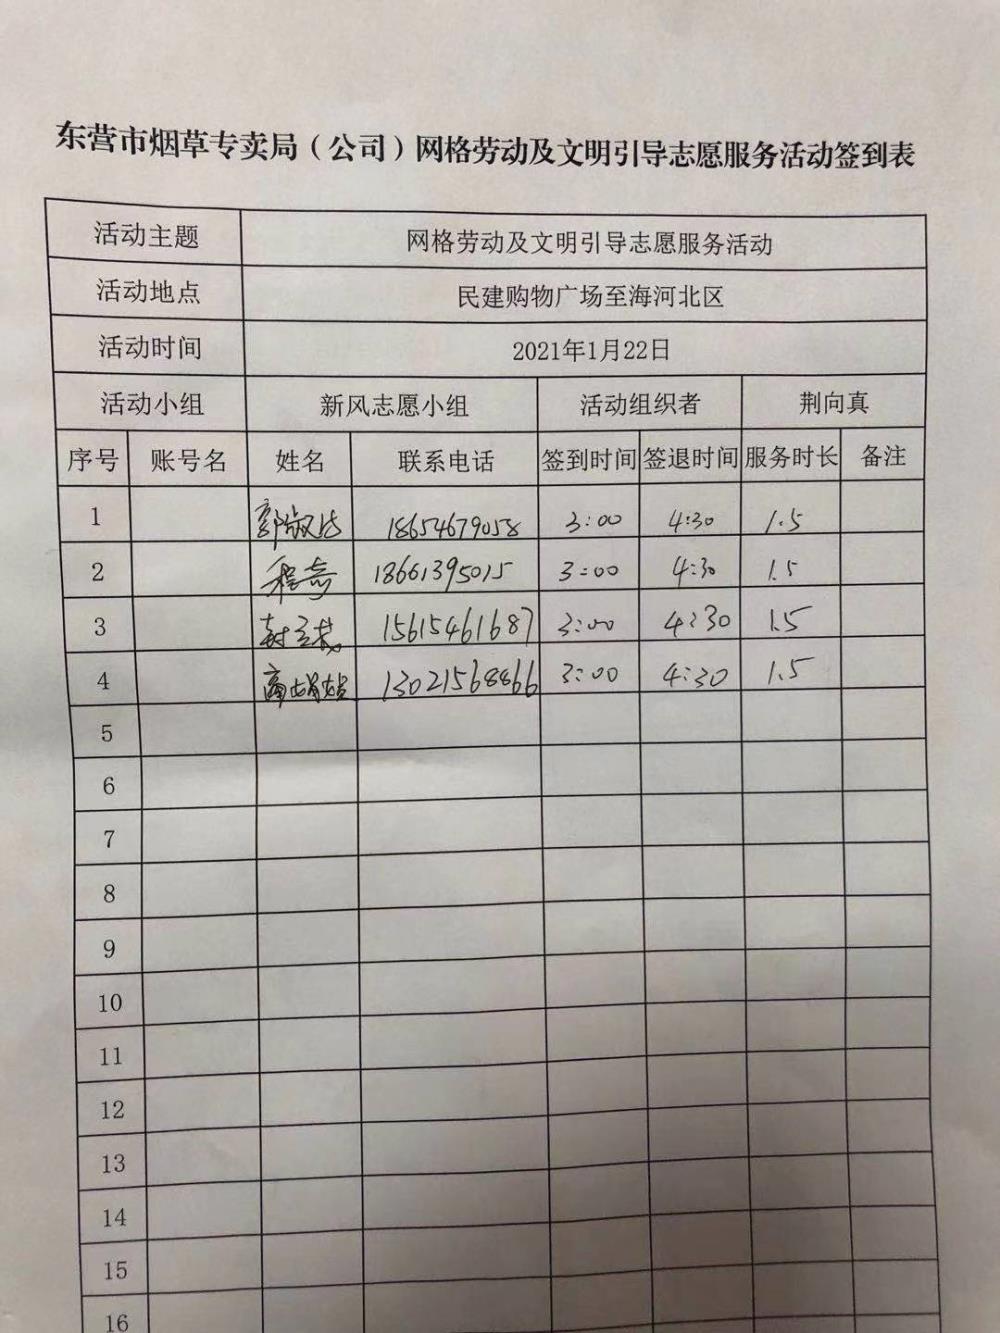 东营市烟草专卖局（公司）网格劳动及文明引导志愿服务活动签到表
活动主题 网格劳动及文明引导志愿服务活动
活动地点 民建购物广场至海河北区
活动时间 2021年1月22日
活动小组 新风志愿小组 活动组织者 荆向真
序号 账号名 姓名 联系电话 签到时间 签退时间 服务时长 备注
1 18654679058 3:00 4:30 1.5
2 18661395015 3:00 4:30 1.5
3 15615461687 3:00 4:30 1.5
4 13021568866 3:00 4:30 1.5
5
6
7
8
9
10
11
12
13
14
15
16